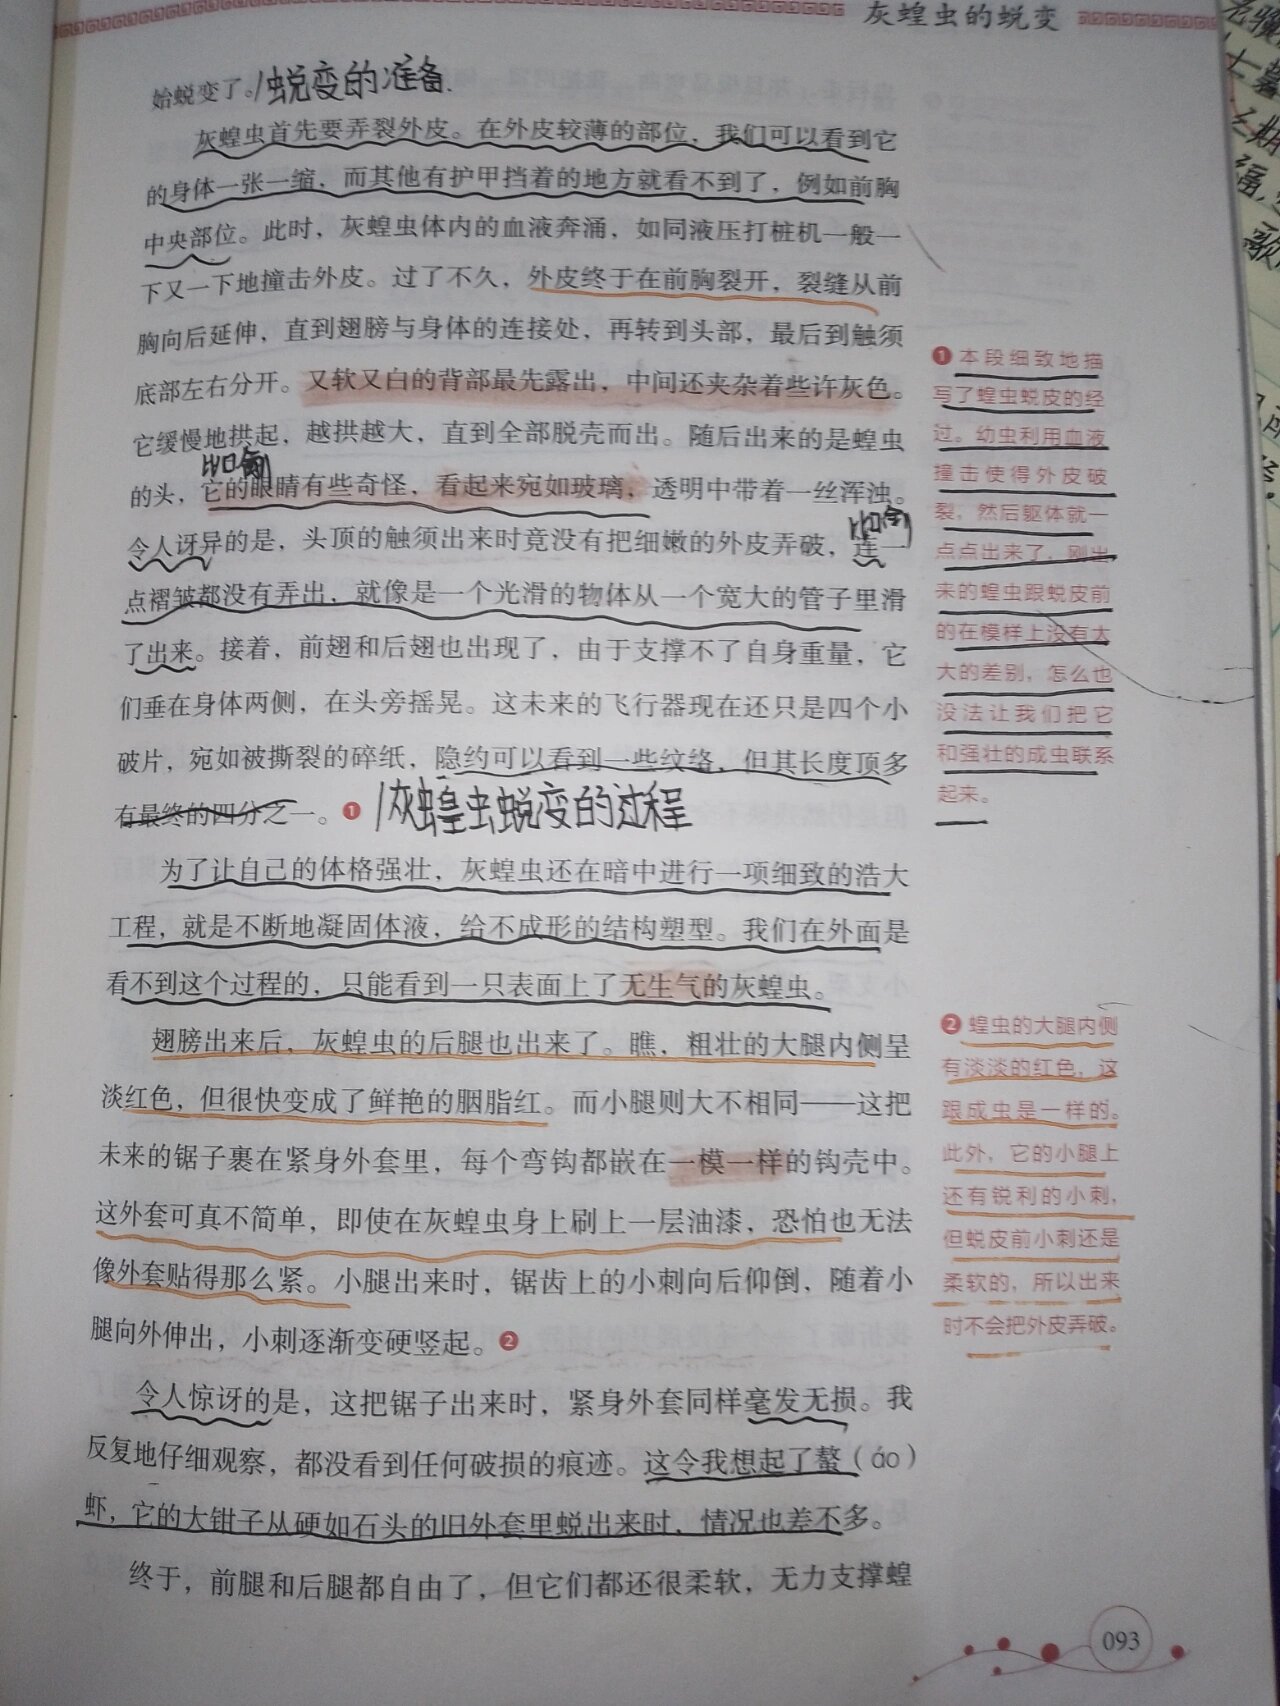 灰蝗虫的蜕变
始蜕变了。/蜕变的准备.
灰蝗虫首先要弄裂外皮。在外皮较薄的部位，我们可以看到它
的身体一张一缩，而其他有护甲挡着的地方就看不到了，例如前胸
中央部位。此时，灰蝗虫体内的血液奔涌，如同液压打桩机一般一
下又一下地撞击外皮。过了不久，外皮终于在前胸裂开，裂缝从前
胸向后延伸，直到翅膀与身体的连接处，再转到头部，最后到触须
底部左右分开。又软又白的背部最先露出，中间还夹杂着些许灰色。
它缓慢地拱起，越拱越大，直到全部脱壳而出。随后出来的是蝗虫
比喻
的头，它的眼睛有些奇怪，看起来宛如玻璃，透明中带着一丝浑浊。
比喻
令人讶异的是，头顶的触须出来时竟没有把细嫩的外皮弄破，连一
点褶皱都没有弄出，就像是一个光滑的物体从一个宽大的管子里滑
了出来。接着，前翅和后翅也出现了，由于支撑不了自身重量，它
们垂在身体两侧，在头旁摇晃。这未来的飞行器现在还只是四个小
破片，宛如被撕裂的碎纸，隐约可以看到一些纹络，但其长度顶多
有最终的四分之一。❶/灰蝗虫蜕变的过程
为了让自己的体格强壮，灰蝗虫还在暗中进行一项细致的浩大
工程，就是不断地凝固体液，给不成形的结构塑型。我们在外面是
看不到这个过程的，只能看到一只表面上了无生气的灰蝗虫。
翅膀出来后，灰蝗虫的后腿也出来了。瞧，粗壮的大腿内侧呈
淡红色，但很快变成了鲜艳的胭脂红。而小腿则大不相同——这把
未来的锯子裹在紧身外套里，每个弯钩都嵌在一模一样的钩壳中。
这外套可真不简单，即使在灰蝗虫身上刷上一层油漆，恐怕也无法
像外套贴得那么紧。小腿出来时，锯齿上的小刺向后仰倒，随着小
腿向外伸出，小刺逐渐变硬竖起。❷
令人惊讶的是，这把锯子出来时，紧身外套同样毫发无损。我
反复地仔细观察，都没看到任何破损的痕迹。这令我想起了螯（áo）
虾，它的大钳子从硬如石头的旧外套里蜕出来时，情况也差不多。
终于，前腿和后腿都自由了，但它们都还很柔软，无力支撑蝗
❶本段细致地描
写了蝗虫蜕皮的经
过。幼虫利用血液
撞击使得外皮破
裂，然后躯体就一
点点出来了，刚出
来的蝗虫跟蜕皮前
的在模样上没有太
大的差别，怎么也
没法让我们把它
和强壮的成虫联系
起来。
❷蝗虫的大腿内侧
有淡淡的红色，这
跟成虫是一样的。
此外，它的小腿上
还有锐利的小刺，
但蜕皮前小刺还是
柔软的，所以出来
时不会把外皮弄破。
093